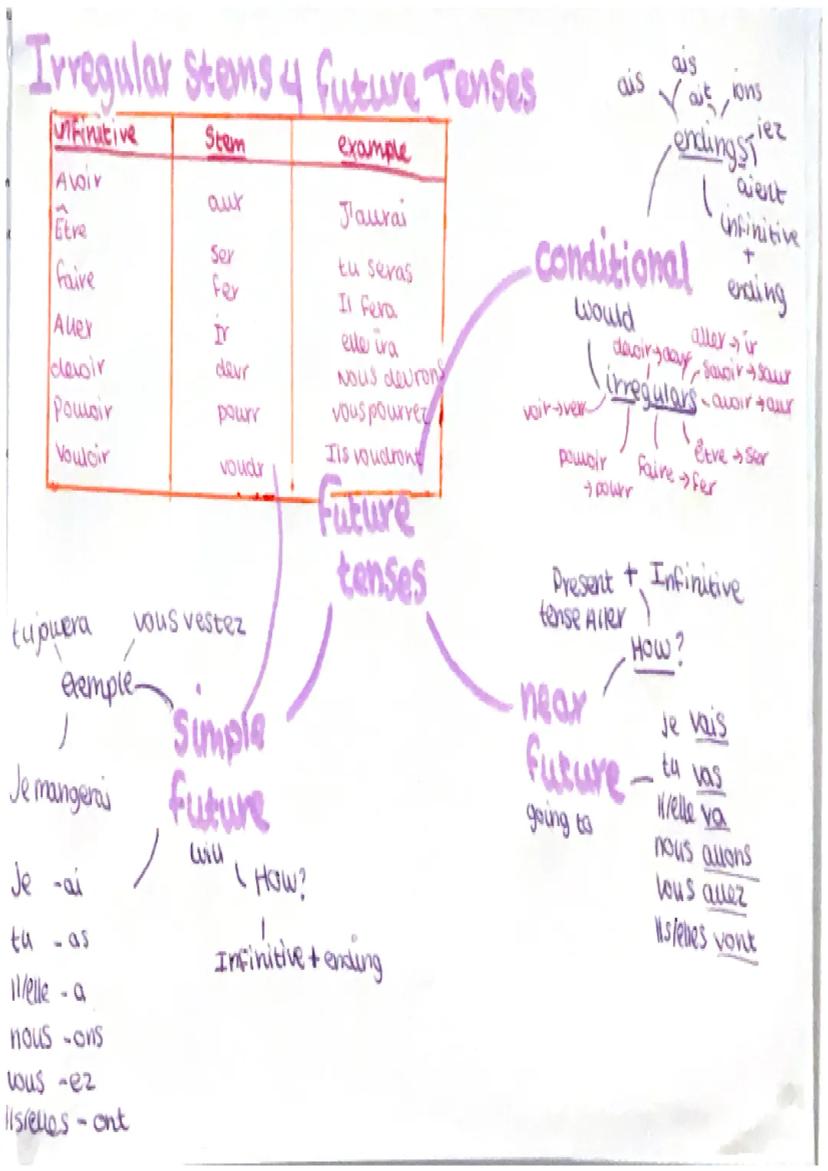 Irregular Stems 4 Future Tenses
infinitive Stem example
Avoir aur J'aurai
Être ser tu seras
faire fer Il fera
Aller Ir elle ira
devoir devr nous devrons
Pouvoir pourr vous pourrez
Vouloir voudr Ils voudront
Future
tenses
conditional
would
endings
ais
ais
ait
ions
iez
aient
infinitive
+
ending
irregulars
devoir → devr
aller → ir
savoir → saur
avoir → aur
être → ser
Faire → fer
pouvoir
→ pourr
voir → verr
near
future
going to
How?
Present + Infinitive
tense Aller
Je vais
tu vas
il/elle va
nous allons
vous allez
ils/elles vont
simple
future
will
How?
Infinitive + ending
exemple
tu jouera
vous vestez
Je mangerai
Je -ai
tu -as
il/elle -a
nous -ons
vous -ez
ils/elles - ont